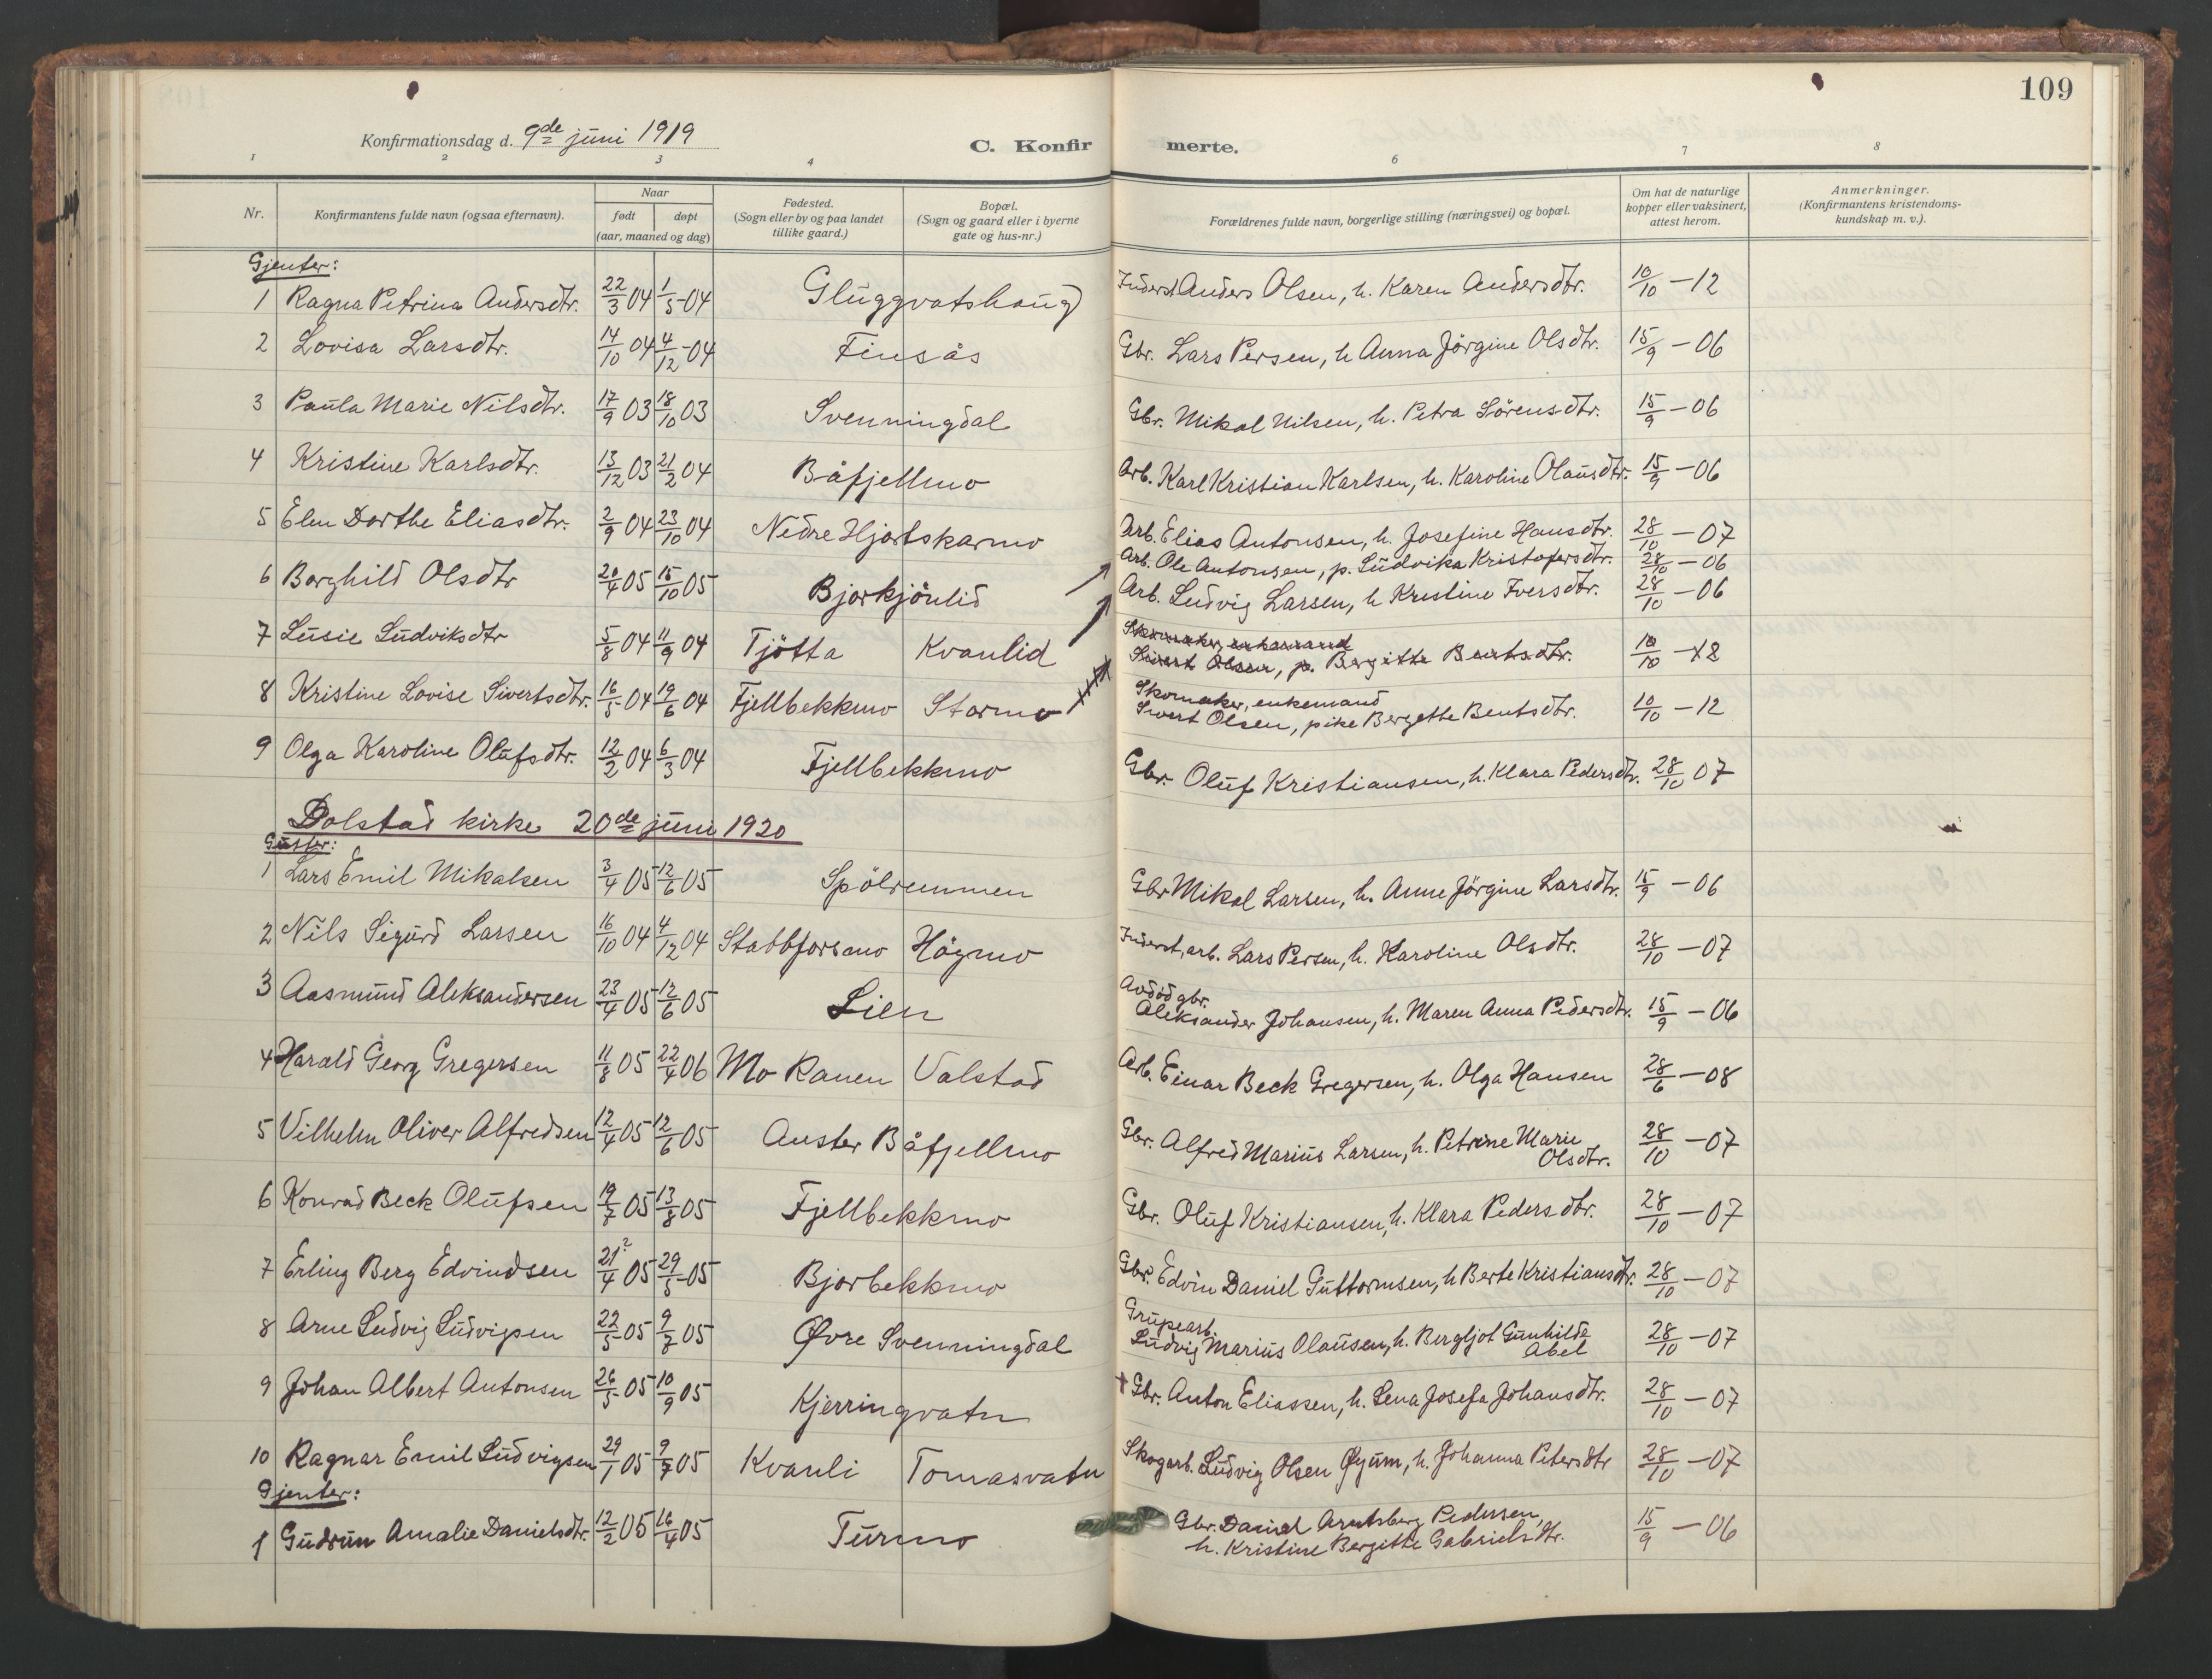 109
Konfirmationsdag d. 9de juni 1919
C. Konfirmerte.
1 2 3 4 6 7 8
Nr. | Konfirmantens fulde navn (ogsaa efternavn). | Naar født | døpt (aar, maaned og dag) | Fødested. (Sogn eller by og paa landet tillike gaard.) | Bopæl. (Sogn og gaard eller i byerne gate og hus-nr.) | Forældrenes fulde navn, borgerlige stilling (næringsvei) og bopæl. | Om hat de naturlige kopper eller vaksinert, attest herom. | Anmerkninger. (Konfirmantens kristendomskundskap m. v.).
Gjenter:
1 Ragna Petrina Andersdtr. 22/3 04 1/5-04 Gluggvatshaug Inderst Anders Olsen, h. Karen Andersdtr. 10/10 - 12
2 Lovisa Larsdtr. 14/10 04 4/12-04 Finsås Gbr. Lars Persen, h Anna Jörgine Olsdtr. 15/9 - 06
3 Paula Marie Nilsdtr. 17/9 03 18/10 03 Svenningdal Gbr. Mikal Nilsen, h. Petra Sörensdtr. 15/9 - 06
4 Kristine Karlsdtr. 13/12 03 21/2 04 Båfjellmo Arb. Karl Kristian Karlsen, h. Karoline Olausdtr. 15/9 - 06
5 Elen Dorthe Eliasdtr. 2/9 04 23/10 04 Nedre Hjortskarmo Arb. Elias Antonsen, h. Josefine Hansdtr. 28/10 - 07
6 Borghild Olsdtr 20/4 05 15/10 05 Bjorkjönlid Arb. Ole Antonsen, p. Ludvika Kristofersdtr. 28/10 - 06
7 Lusie Ludviksdtr 5/8 04 11/9 04 Tjötta Kvanlid Arb. Ludvig Larsen, h Kristine Iversdtr. 28/10 - 06
Skomaker, enkemand
Sivert Olsen, p. Bergitte Bentsdtr. 10/10 - 12
8 Kristine Lovise Sivertsdtr. 16/5 04 19/6 04 Fjellbekkmo Stormo Skomaker, enkemand
Sivert Olsen, pike Bergette Bentsdtr. 10/10 - 12
9 Olga Karoline Olufsdtr. 12/2 04 6/3 04 Fjellbekkmo Gbr. Oluf Kristiansen, h. Klara Pedersdtr. 28/10 07
Dolstad kirke 20de juni 1920
Gutter:
1 Lars Emil Mikalsen 3/4 05 12/6 05 Spölremmen Gbr Mikal Larsen, h. Anne Jörgine Larsdtr. 15/9 - 06
2 Nils Sigurd Larsen 16/10 04 4/12 04 Stabbforsmo Högmo Inderst, arb. Lars Persen, h. Karoline Olsdtr. 28/10 - 07
3 Aasmund Aleksandersen 23/4 05 12/6 05 Lien Avdöd gbr.
Aleksander Johansen, h. Maren Anna Pedersdtr. 15/9 - 06
4 Harald Georg Gregersen 11/8 05 22/4 06 Mo Ranen Valstad Arb. Einar Beck Gregersen, h. Olga Hansen 28/6 - 08
5 Vilhelm Oliver Alfredsen 12/4 05 12/6 05 Auster Båfjellmo Gbr. Alfred Marius Larsen, h. Petrine Marie
Olsdtr. 28/10 - 07
6 Konrad Beck Olufsen 19/7 05 13/8 05 Fjellbekkmo Gbr. Oluf Kristiansen, h. Klara Pedersdtr. 28/10 - 07
7 Erling Berg Edvindsen 21?/4 05 29/5-05 Bjorbekkmo Gbr. Edvin Daniel Guttormsen, h Berte Kristiansdtr. 28/10 - 07
8 Arne Ludvig Ludvigsen 22/5 05 9/7 05 Øvre Svenningdal Grupearb.
Ludvig Marius Olausen, h. Bergljot Gunhilde
Abel 28/10 - 07
9 Johan Albert Antonsen 26/5 05 10/9 05 Kjerringvatn † Gbr. Anton Eliassen, h. Lena Josefa Johansdtr. 28/10 - 07
10 Ragnar Emil Ludvigsen 29/1 05 9/7 05 Kvanli Tomasvatn Skogarb. Ludvig Olsen Øyum, h. Johanna Petersdtr 28/10 - 07
Gjenter:
1 Gudrun Amalie Danielsdtr. 12/2 05 16/4 05 Turmo Gbr. Daniel Arntsberg Pedersen,
h. Kristine Bergitte Gabrielsdtr. 15/9 - 06